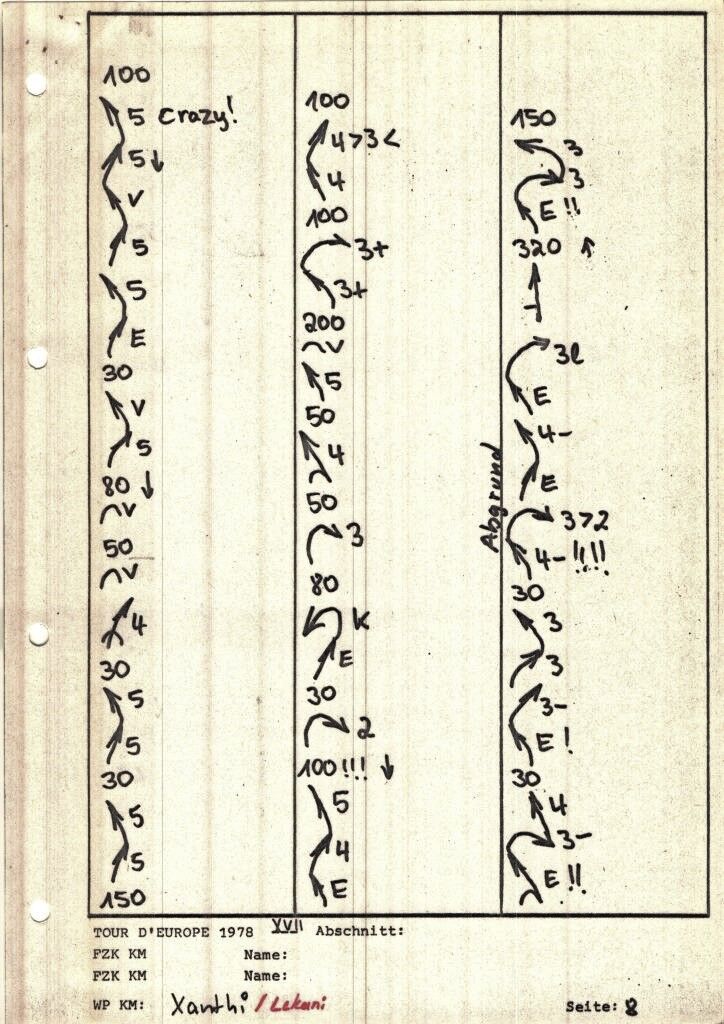 100
5 Crazy!
5↓
V
5
5
E
30
V
5
80 ↓
V
50
V
4
30
5
5
30
5
5
150
100
4>3<
4
100
3+
3+
200
V
5
50
4
50
3
80
K
E
30
2
100!!! ↓
5
4
E
150
3
3
E!!
320 ↑
3l
E
4-
E
Abgrund
3>2
4-!!!!
30
3
3
3-
E!
30
4
3-
E!!
TOUR D'EUROPE 1978 XVII Abschnitt:
FZK KM Name:
FZK KM Name:
WP KM: Xanthi / Lekani Seite: 8